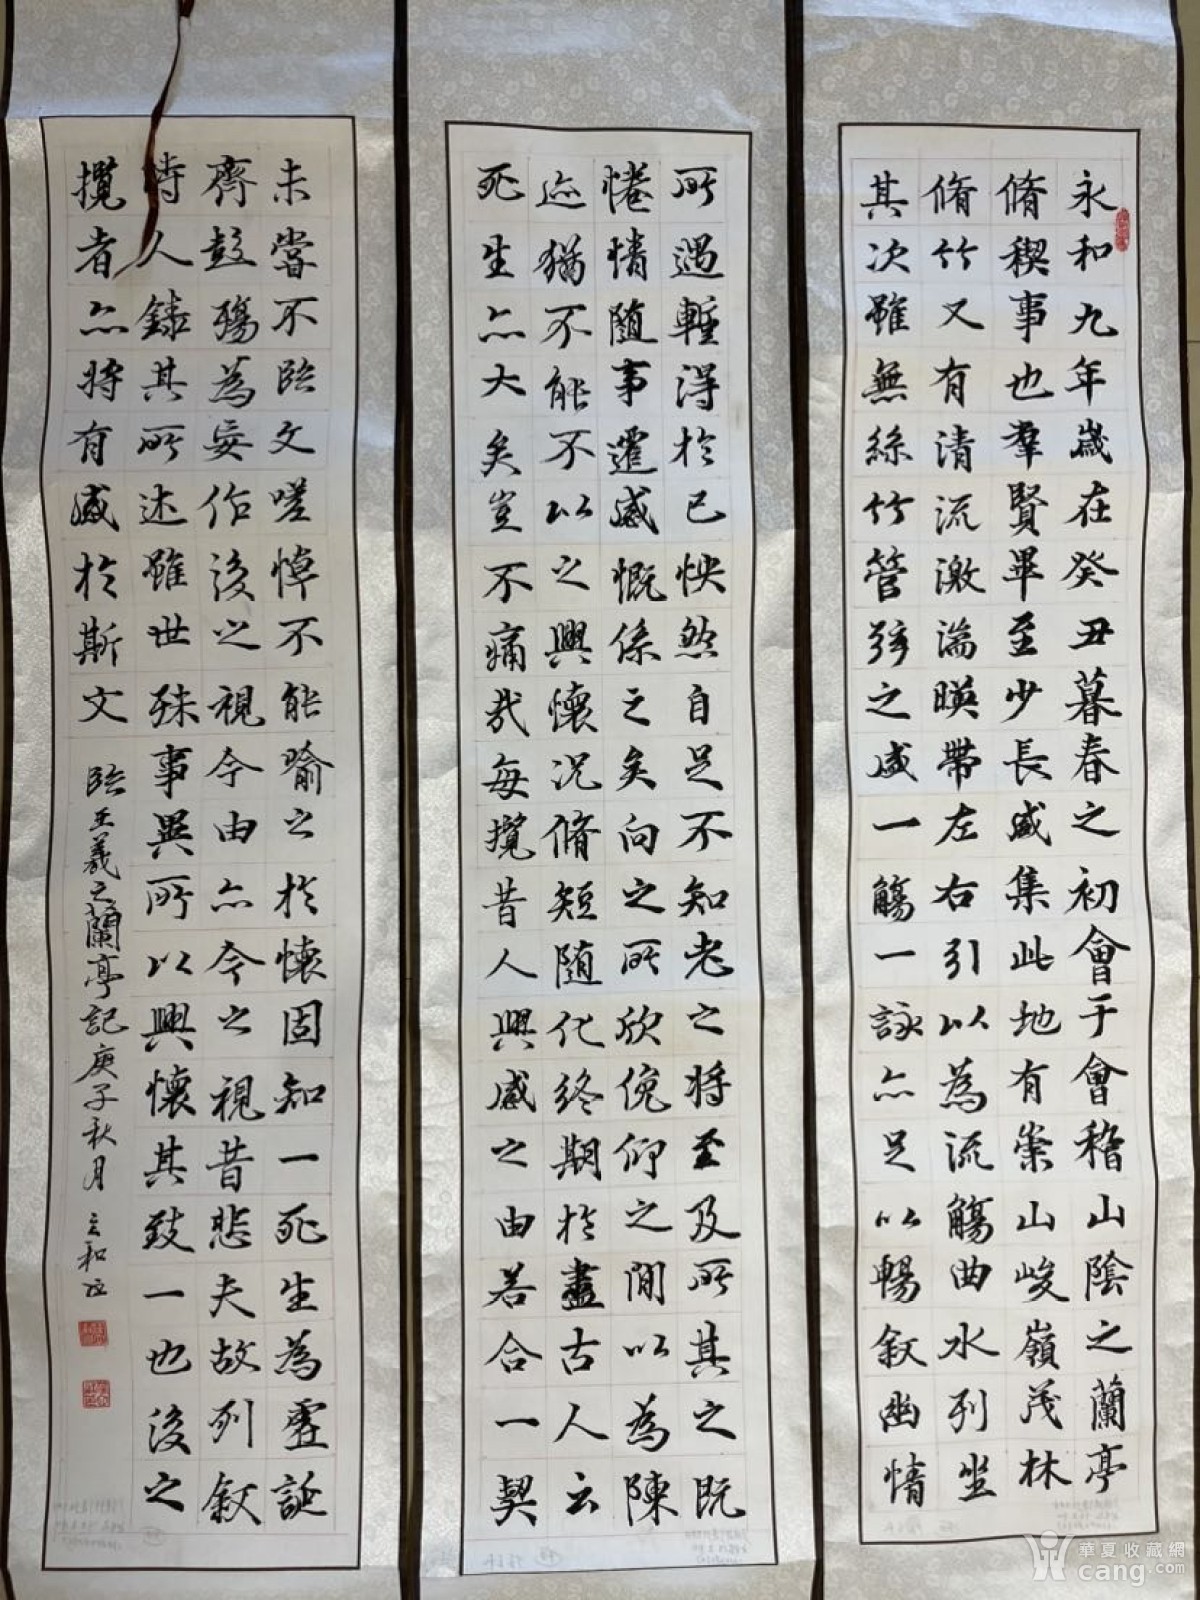 永和九年歲在癸丑暮春之初會于會稽山陰之蘭亭
脩稧事也羣賢畢至少長咸集此地有崇山峻嶺茂林
脩竹又有清流激湍暎帶左右引以為流觴曲水列坐
其次雖無絲竹管弦之盛一觴一詠亦足以暢叙幽情
所遇蹔得於己怏然自足不知老之將至及所其之既
惓情隨事遷感慨係之矣向之所欣俛仰之閒以為陳
迹猶不能不以之興懷況脩短隨化終期於盡古人云
死生亦大矣豈不痛哉每攬昔人興感之由若合一契
未嘗不臨文嗟悼不能喻之於懷固知一死生為虛誕
齊彭殤為妄作後之視今由亦今之視昔悲夫故列叙
時人錄其所述雖世殊事異所以興懷其致一也後之
攬者亦將有感於斯文
臨王羲之蘭亭記庚子秋月立和
華夏收藏網
cang.com